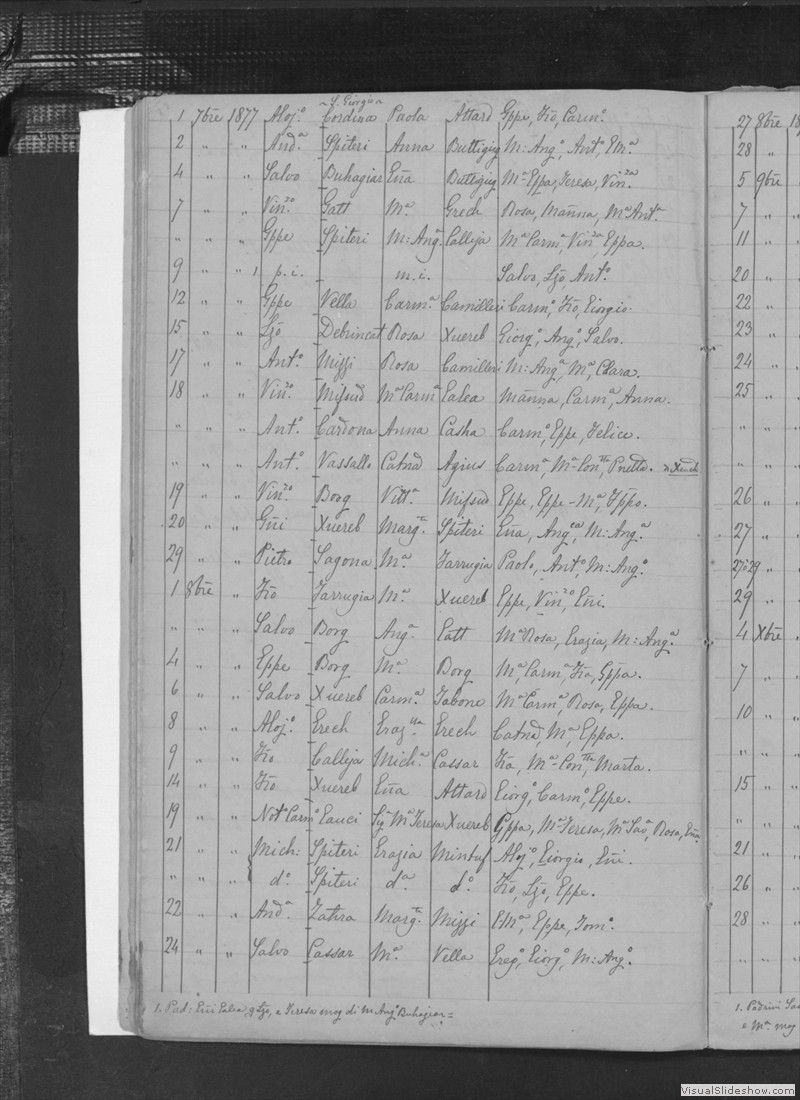 ~ S. Giorgio ~
1 7bre 1877 Aloj.º Cordina Paola Attard Gppe, Fco, Carm.º
2 " " And.ª Spiteri Anna Buttigieg M: Ang.ª, Ant.º, Elm.ª
4 " " Salvo Buhagiar Eña Buttigieg Mª Eppa, Teresa, Vin.za
7 " " Vin.zo Gatt M.ª Grech Rosa, Mañna, Mª Ant.ª
" " " Gppe Spiteri M: Ang.ª Calleja Mª Carm.ª, Vin.za, Eppa.
9 " " 1 p.i. m.i. Salvo, Lzo, Ant.º
12 " " Gppe Vella Carm.ª Camilleri Carm.º, Fco, Giorgio.
15 " " Lzo Debrincat Rosa Xuereb Giorg.º, Ang.º, Salvo.
17 " " Ant.º Mizzi Rosa Camilleri M: Ang.ª, M.ª, Clara.
18 " " Vin.zo Mifsud Mª Carm.ª Galea Mañna, Carm.ª, Anna.
" " " Ant.º Cardona Anna Casha Carm.º, Eppe, Felice.
" " " Ant.º Vassallo Catnd Agius Carm.ª, Mª Con.tta, Pnetta. Xuereb
19 " " Vin.zo Borg Vitt.ª Mifsud Eppe, Eppe-M.ª,
20 " " Gñi Xuereb Marg.ta Spiteri Eña, Ang.ca, M: Ang.ª
29 " " Pietro Sagona M.ª Farrugia Paolo, Ant.º, M: Ang.º
1 8bre " Fco Farrugia M.ª Xuereb Eppe, Vin.zo, Eñi.
" " Salvo Borg Ang.ª Gatt Mª Rosa, Grazia, M: Ang.ª
4 " " Eppe Borg M.ª Borg Mª Carm.ª, Fca, Gppa.
6 " " Salvo Xuereb Carm.ª Tabone Mª Carm.ª, Rosa, Eppa.
8 " " Aloj.º Grech Graz.lla Grech Catnd, M.ª, Eppa.
9 " " Fco Calleja Mich.ª Cassar Fca, Mª-Con.tta, Marta.
14 " " Fco Xuereb Eña Attard Giorg.º, Carm.º, Eppe.
19 " " Not.º Carm.º Gauci Sig.ª Mª Teresa Xuereb Gppa, Mª Teresa, Mª Sav.ª, Rosa, Eña.
21 " " Mich: Spiteri Grazia Mintuf Aloj.º, Giorgio, Eñi.
" " " d.º Spiteri d.ª d.º Fco, Lzo, Eppe.
22 " " And.ª Zahra Marg.ta Mizzi Elm.ª, Eppe, Tom.º
24 " " Salvo Cassar M.ª Vella Greg.º, Giorg.º, M: Ang.º
1. Pad: Eñi Galea, q Lzo, e Teresa mog di M Ang.º Buhagiar =
27 8bre 1
28 "
5 9bre
7 "
11 "
20 "
22 "
23 "
24 "
25 "
" "
" "
26 "
27 "
29 "
29 "
4 Xbre
7 "
10 "
" "
15 "
" "
21 "
26 "
28 "
" "
1. Padrini Sa
e M.ª mog
VisualSlideshow.com